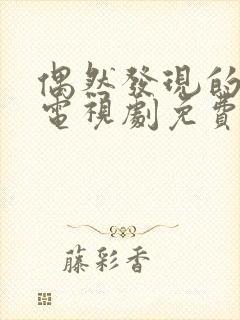 偶然發現的
電視劇免費
藤彩香